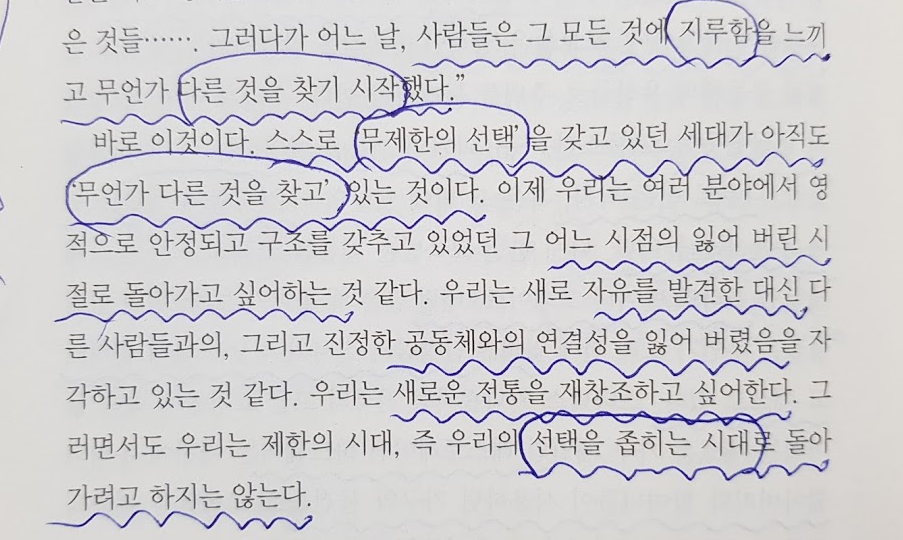 은 것들……. 그러다가 어느 날, 사람들은 그 모든 것에 지루함을 느끼
고 무언가 다른 것을 찾기 시작했다.”
바로 이것이다. 스스로 ‘무제한의 선택’을 갖고 있던 세대가 아직도
‘무언가 다른 것을 찾고’ 있는 것이다. 이제 우리는 여러 분야에서 영
적으로 안정되고 구조를 갖추고 있었던 그 어느 시점의 잃어 버린 시
절로 돌아가고 싶어하는 것 같다. 우리는 새로 자유를 발견한 대신 다
른 사람들과의, 그리고 진정한 공동체와의 연결성을 잃어 버렸음을 자
각하고 있는 것 같다. 우리는 새로운 전통을 재창조하고 싶어한다. 그
러면서도 우리는 제한의 시대, 즉 우리의 선택을 좁히는 시대로 돌아
가려고 하지는 않는다.